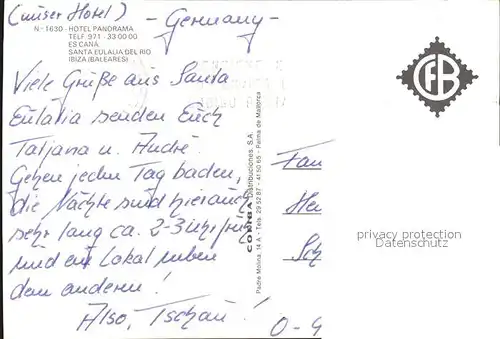 (unser Hotel) - Germany -
N.º 1630 - HOTEL PANORAMA
TELF 971 - 33 00 00
ES CANÁ
SANTA EULALIA DEL RIO
IBIZA (BALEARES)
Viele Grüße aus Santa
Eulalia senden Euch
Tatjana u. André.
Gehen jeden Tag baden,
die Nächte sind hier auch
sehr lang ca. 2-3 Uhr früh
und ein Lokal neben
dem anderen!
Also, Tschau!
Distribuciones S.A.
Padre Molina, 14 A - Tels. 29 52 87 - 41 50 65 - Palma de Mallorca
CFB
Fam
Her
Sch
O-4
privacy protection
Datenschutz